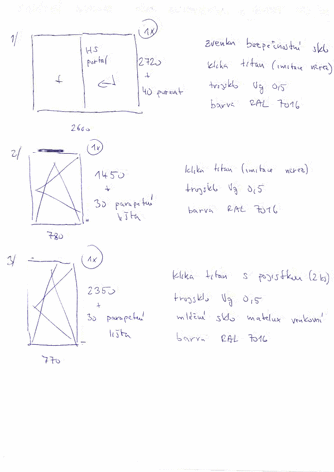 1/
1x
HS
portál
2720
+
40 purenit
2600
zvenku bezpečnostní sklo
klika titan (imitace nerez)
trojsklo Ug 0,5
barva RAL 7016
2/
1x
1450
+
30 parapetní
lišta
780
klika titan (imitace nerez)
trojsklo Ug 0,5
barva RAL 7016
3/
1x
2350
+
30 parapetní
lišta
770
klika titan s pojistkou (2ks)
trojsklo Ug 0,5
mléčné sklo matelux venkovní
barva RAL 7016